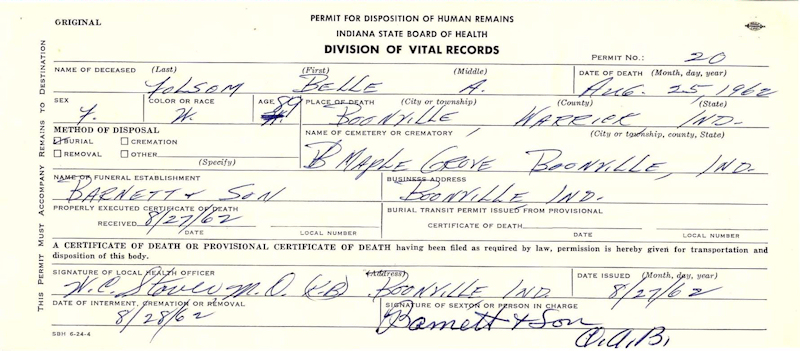 GRIGINAL
PERMIT FOR DISPOSITION OF HUMAN REMAINS
INDIANA STATE BOARD OF HEALTH
DIVISION OF VITAL RECORDS
PERMIT NO.: 20
THIS PERMIT MUST ACCOMPANY REMAINS TO DESTINATION
NAME OF DECEASED (Last) (First) (Middle) DATE OF DEATH (Month, day, year)
FOLSOM BELLE A. AUG. 25, 1962
SEX COLOR OR RACE AGE 89 PLACE OF DEATH (City or township) (County) (State)
F. W. BOONVILLE WARRICK IND.
METHOD OF DISPOSAL NAME OF CEMETERY OR CREMATORY (City or township, county, State)
BURIAL CREMATION
REMOVAL OTHER
(Specify)
B MAPLE GROVE BOONVILLE, IND.
NAME OF FUNERAL ESTABLISHMENT BUSINESS ADDRESS
BARNETT & SON BOONVILLE IND.
PROPERLY EXECUTED CERTIFICATE OF DEATH BURIAL TRANSIT PERMIT ISSUED FROM PROVISIONAL
RECEIVED 8/27/62 CERTIFICATE OF DEATH
DATE LOCAL NUMBER DATE LOCAL NUMBER
A CERTIFICATE OF DEATH OR PROVISIONAL CERTIFICATE OF DEATH having been filed as required by law, permission is hereby given for transportation and
disposition of this body.
SIGNATURE OF LOCAL HEALTH OFFICER (Address) DATE ISSUED (Month, day, year)
W.C. M.D. BOONVILLE IND. 8/27/62
DATE OF INTERMENT, CREMATION OR REMOVAL SIGNATURE OF SEXTON OR PERSON IN CHARGE
8/28/62 Barnett & Son
O.A.B.
SBH 6-24-4